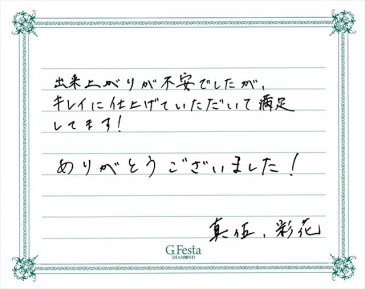 出来上がりが不安でしたが、
キレイに仕上げていただいて満足
してます!
ありがとうございました!
真伍、彩花
G.Festa
DIAMOND